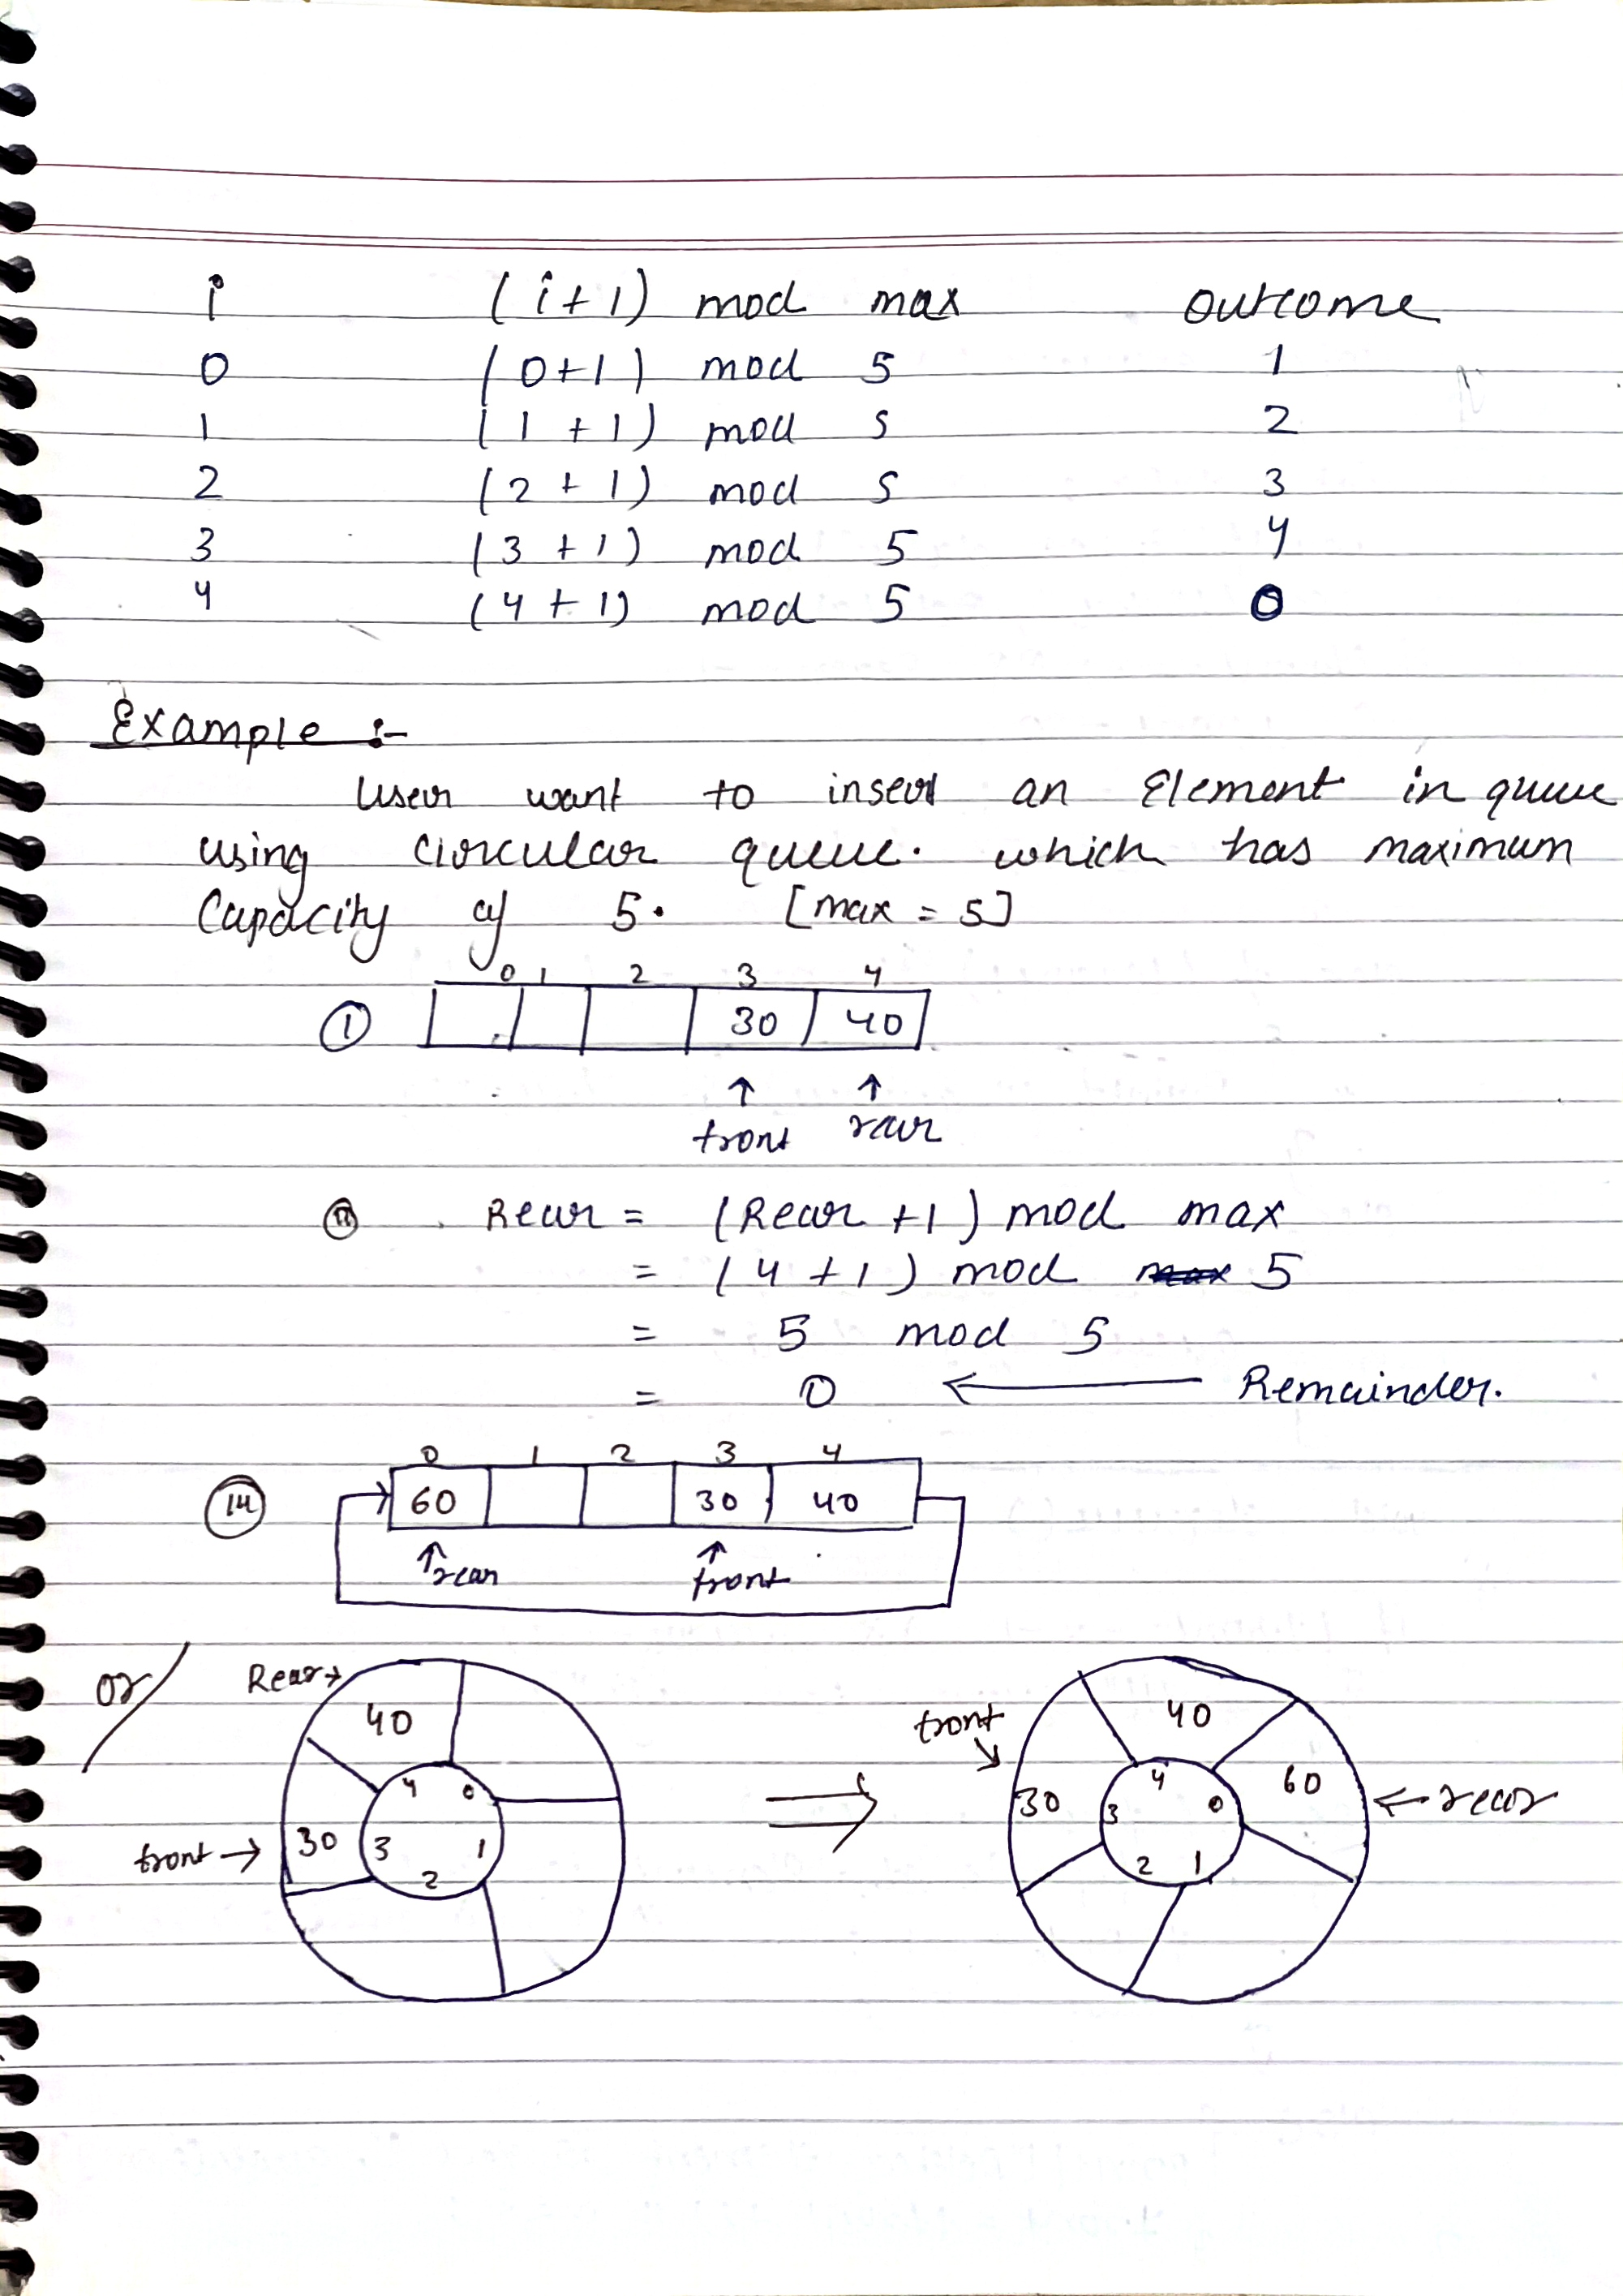 i (i+1) mod max outcome
0 (0+1) mod 5 1
1 (1+1) mod 5 2
2 (2+1) mod 5 3
3 (3+1) mod 5 4
4 (4+1) mod 5 0
Example :-
User want to insert an Element in queue
using circular queue. which has maximum
Capacity of 5. [max = 5]
0 1 2 3 4
① 30 40
↑ ↑
front rear
Rear = (Rear +1) mod max
= (4+1) mod 5
= 5 mod 5
= 0 ← Remainder.
0 1 2 3 4
60 30 40
↑rear ↑front
or/
Rear→
40
4 0
front → 30 3 1
2
⇒
front
40
4
30 3 0 60 ← rear
2 1